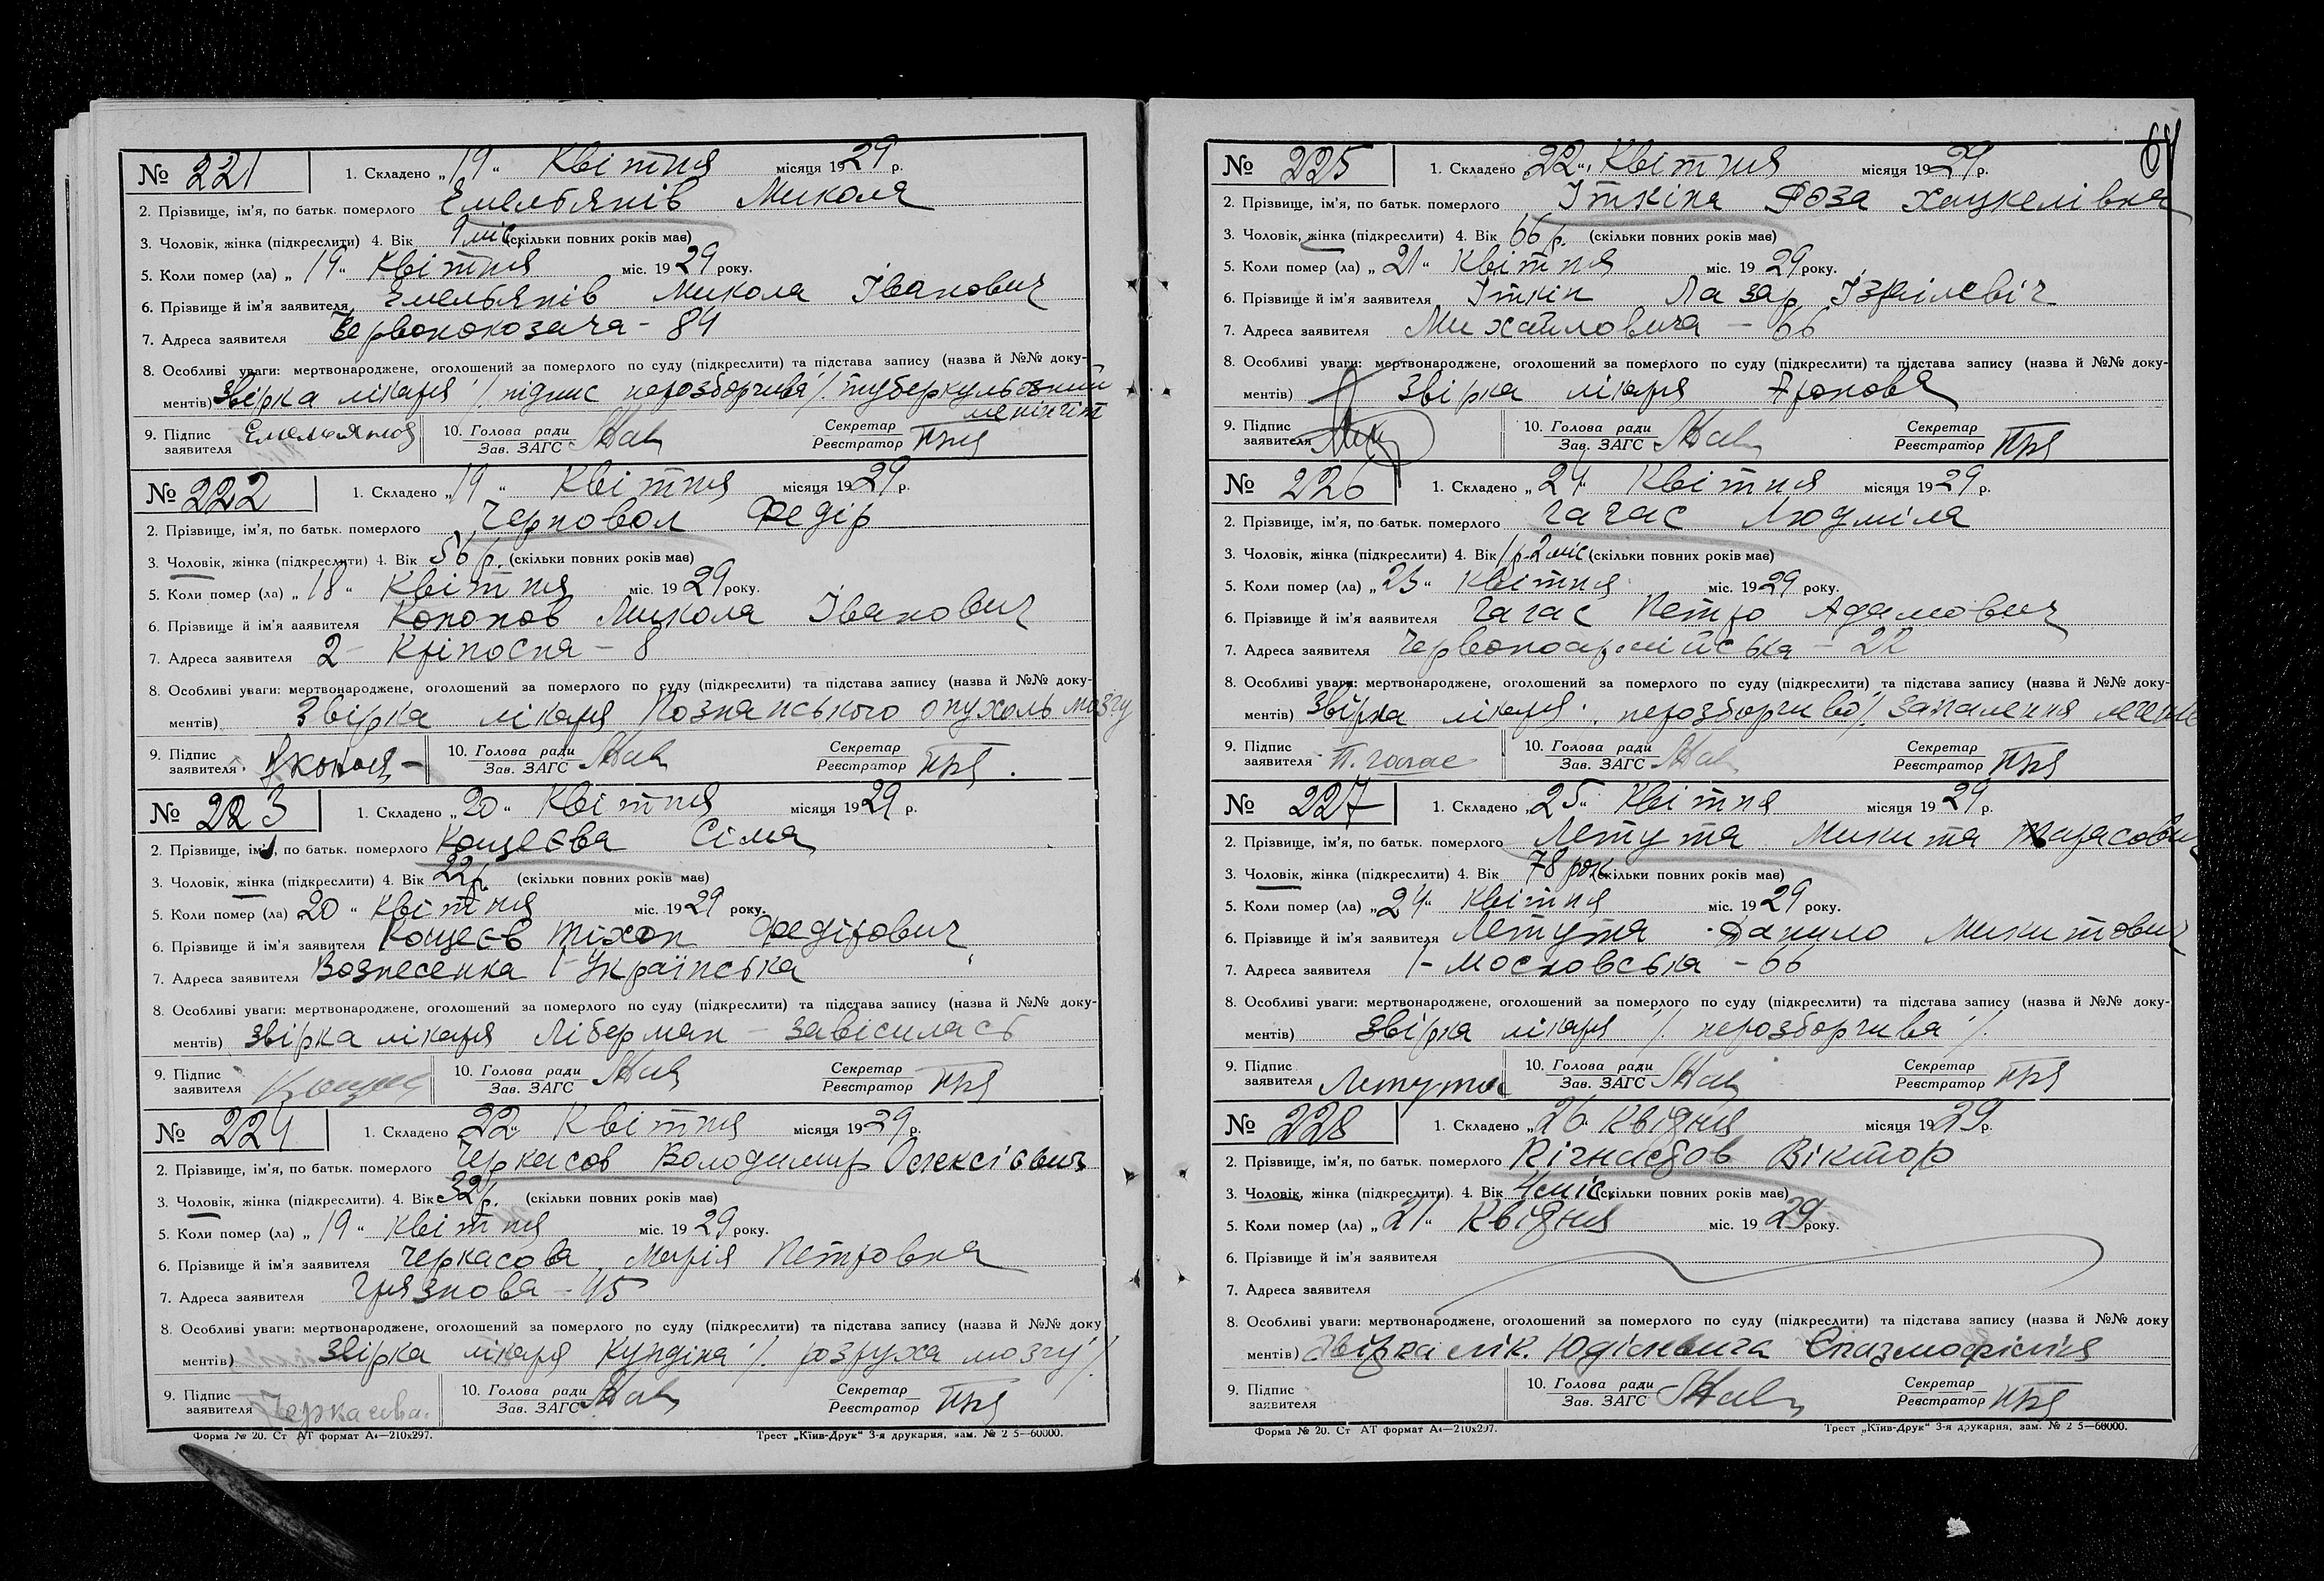 № 221 1. Складено „19“ Квітня місяця 1929 р.
2. Прізвище, ім’я, по батьк. померлого Емельянів Микола
3. Чоловік, жінка (підкреслити) 4. Вік 9 міс. (скільки повних років має)
5. Коли помер (ла) „19“ Квітня міс. 1929 року.
6. Прізвище й ім’я заявителя Емельянів Микола Іванович
7. Адреса заявителя Червонокозача - 84
8. Особливі уваги: мертвонароджене, оголошений за померлого по суду (підкреслити) та підстава запису (назва й №№ доку-
ментів) Звірка лікаря /. підпис нерозборчива /. туберкульозний
менінгіт
9. Підпис заявителя 10. Голова ради Зав. ЗАГС Секретар Реєстратор
№ 222 1. Складено „19“ Квітня місяця 1929 р.
2. Прізвище, ім’я, по батьк. померлого Черновол Федір
3. Чоловік, жінка (підкреслити) 4. Вік 56 р. (скільки повних років має)
5. Коли помер (ла) „18“ Квітня міс. 1929 року.
6. Прізвище й ім’я ааявителя Кононов Микола Іванович
7. Адреса заявителя 2 - Кріпосна - 8
8. Особливі уваги: мертвонароджене, оголошений за померлого по суду (підкреслити) та підстава запису (назва й №№ доку-
ментів) Звірка лікаря Познанського опухоль мозгу
9. Підпис заявителя 10. Голова ради Зав. ЗАГС Секретар Реєстратор
№ 223 1. Складено „20“ Квітня місяця 1929 р.
2. Прізвище, ім’я, по батьк. померлого Кощеєва Сіма
3. Чоловік, жінка (підкреслити) 4. Вік 22 р. (скільки повних років має)
5. Коли помер (ла) 20“ Квітня міс. 1929 року.
6. Прізвище й ім’я заявителя Кощеєв Тіхон Федірович
7. Адреса заявителя Вознесенка 1 - Українська
8. Особливі уваги: мертвонароджене, оголошений за померлого по суду (підкреслити) та підстава запису (назва й №№ доку-
ментів) Звірка лікаря Ліберман - завісилась
9. Підпис заявителя 10. Голова ради Зав. ЗАГС Секретар Реєстратор
№ 224 1. Складено 22“ Квітня місяця 1929 р.
2. Прізвище, ім’я, по батьк. померлого Черкасов Володимир Олексієвич
3. Чоловік, жінка (підкреслити). 4. Вік 32 р. (скільки повних років має)
5. Коли помер (ла) „19“ Квітня міс. 1929 року.
6. Прізвище й ім’я заявителя Черкасова Марія Петровна
7. Адреса заявителя Грязнова - 45
8. Особливі уваги: мертвонароджене, оголошений за померлого по суду (підкреслити) та підстава запису (назва й №№ доку
ментів) Звірка лікаря Кундіна /. розруха мозгу /.
9. Підпис заявителя Черкасова. 10. Голова ради Зав. ЗАГС Секретар Реєстратор
Форма № 20. Ст АТ формат А4—210х297. Трест „Київ-Друк“ 3-я друкарня, зам. № 2 5—60000.
64
№ 225 1. Складено „22“ Квітня місяця 1929 р.
2. Прізвище, ім’я, по батьк. померлого Іткіна Роза Хацкелівна
3. Чоловік, жінка (підкреслити) 4. Вік 66 р. (скільки повних років має)
5. Коли помер (ла) „21“ Квітня міс. 1929 року.
6. Прізвище й ім’я заявителя Іткін Лазар Ізраілевіч
7. Адреса заявителя Михайловича - 66
8. Особливі уваги: мертвонароджене, оголошений за померлого по суду (підкреслити) та підстава запису (назва й №№ доку-
ментів) Звірка лікаря
9. Підпис заявителя 10. Голова ради Зав. ЗАГС Секретар Реєстратор
№ 226 1. Складено „24“ Квітня місяця 1929 р.
2. Прізвище, ім’я, по батьк. померлого Гагас Людміла
3. Чоловік, жінка (підкреслити) 4. Вік 1 р. 2 міс (скільки повних років має)
5. Коли помер (ла) „23“ Квітня міс. 1929 року.
6. Прізвище й ім’я ааявителя Гагас Петро Адамович
7. Адреса заявителя Червоноармійська - 22
8. Особливі уваги: мертвонароджене, оголошений за померлого по суду (підкреслити) та підстава запису (назва й №№ доку-
ментів) Звірка лікаря /. нерозборчиво /. Запалення
9. Підпис заявителя П. Гагас 10. Голова ради Зав. ЗАГС Секретар Реєстратор
№ 227 1. Складено „25“ Квітня місяця 1929 р.
2. Прізвище, ім’я, по батьк. померлого Летута Микита Тарасович
3. Чоловік, жінка (підкреслити) 4. Вік 78 рок. (скільки повних років має)
5. Коли помер (ла) „24“ Квітня міс. 1929 року.
6. Прізвище й ім’я заявителя Летута Данило Микитович
7. Адреса заявителя 1 - Московська - 66
8. Особливі уваги: мертвонароджене, оголошений за померлого по суду (підкреслити) та підстава запису (назва й №№ доку-
ментів) Звірка лікаря /. нерозборчива /.
9. Підпис заявителя Летута 10. Голова ради Зав. ЗАГС Секретар Реєстратор
№ 228 1. Складено „26“ Квідня місяця 1929 р.
2. Прізвище, ім’я, по батьк. померлого Віктор
3. Чоловік, жінка (підкреслити). 4. Вік 4 міс. (скільки повних років має)
5. Коли помер (ла) „21“ Квідня міс. 1929 року.
6. Прізвище й ім’я заявителя
7. Адреса заявителя
8. Особливі уваги: мертвонароджене, оголошений за померлого по суду (підкреслити) та підстава запису (назва й №№ доку
ментів) Звірка лік. Юділевича Спазмофілія
9. Підпис заявителя 10. Голова ради Зав. ЗАГС Секретар Реєстратор
Форма № 20. Ст АТ формат А4—210х297. Трест „Київ-Друк“ 3-я друкарня, зам. № 2 5—60000.